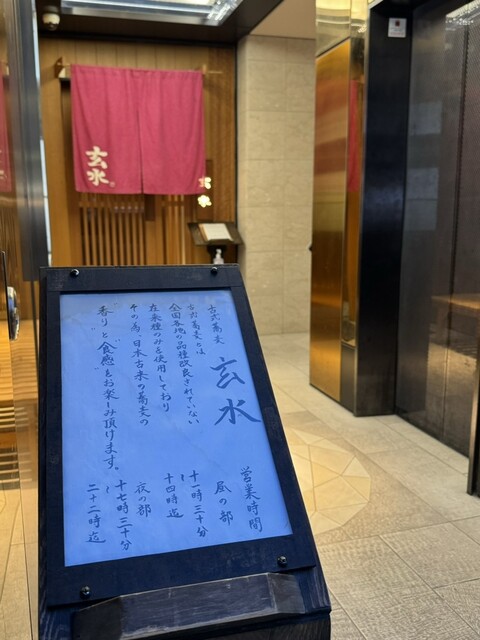 玄水
玄水
古式蕎麦
玄水
古式蕎麦とは
全国各地の品種改良されていない
在来種のみを使用しており
その為、日本古来の蕎麦の
“香り”と“食感”をお楽しみ頂けます。
営業時間
昼の部
十一時三十分
～
十四時迄
夜の部
十七時三十分
～
二十二時迄